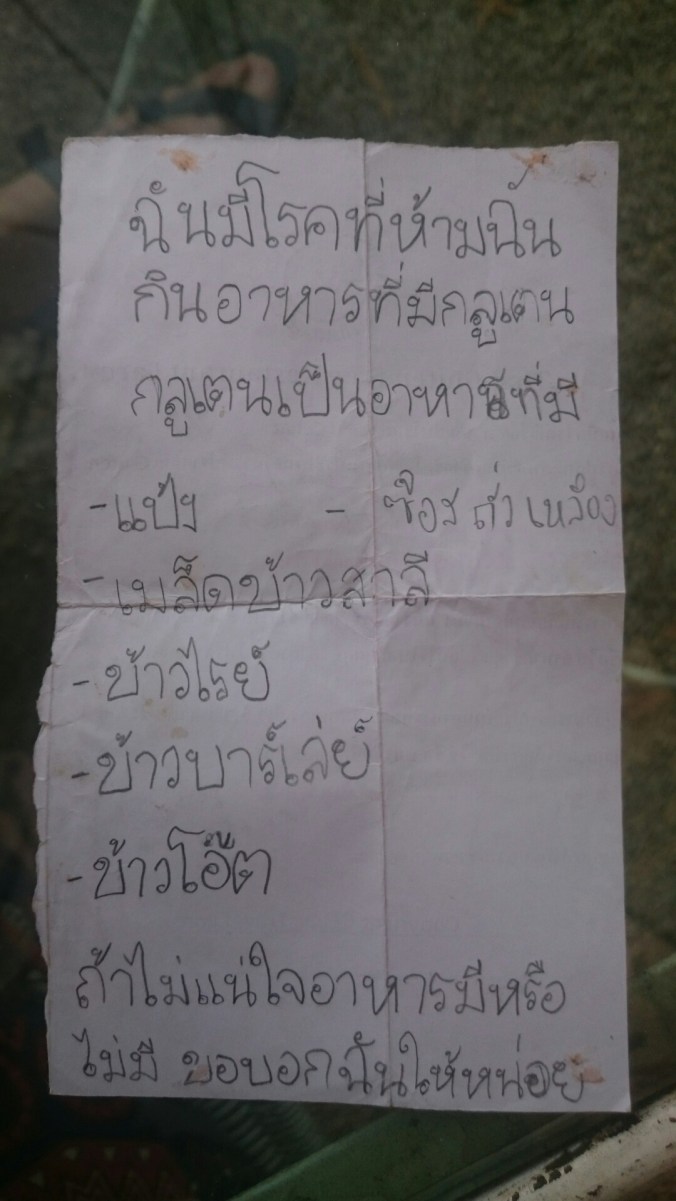 ฉันมีโรคที่ห้ามฉัน
กินอาหารที่มีกลูเตน
กลูเตนเป็นอาหารที่มี
-แป้ง - ซ๊อส ถั่วเหลือง
-เมล็ดข้าวสาลี
-ข้าวไรย์
-ข้าวบาร์เล่ย์
-ข้าวโอ๊ต
ถ้าไม่แน่ใจอาหารมีหรือ
ไม่มี ขอบอกฉันให้หน่อย